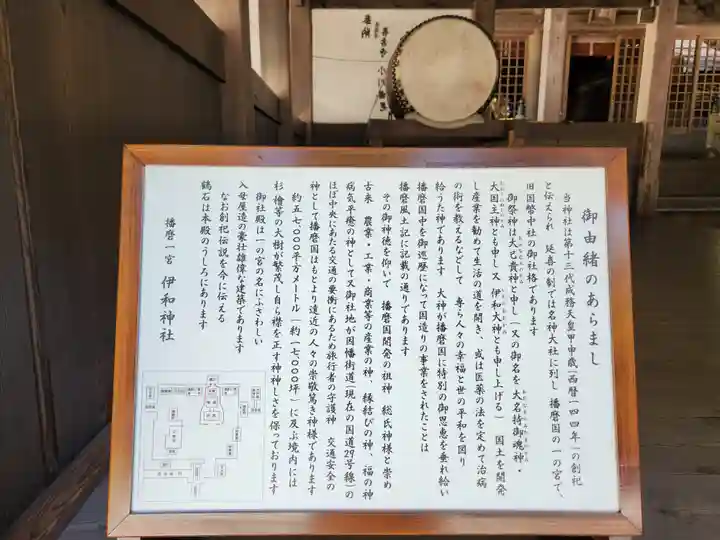 御由緒のあらまし
当神社は第十三代成務天皇甲申歳(西暦一四四年)の創祀
と伝えられ 延喜の制では名神大社に列し 播磨国の一の宮で、
旧国幣中社の御社格であります
御祭神は大己貴神と申し(又の御名を 大名持御魂神・
大国主神とも申し又 伊和大神とも申し上げる) 国土を開発
し産業を勧めて生活の道を開き、或は医薬の法を定めて治病
の術を教えるなどして 専ら人々の幸福と世の平和を図り
給うた神であります 大神が播磨国に特別の御恩恵を垂れ給い
播磨国中を御巡歴になって国造りの事業をされたことは
播磨風土記に記載の通りであります
その御神徳を仰いで 播磨国開発の祖神 総氏神様と崇め
古来 農業・工業・商業等の産業の神、縁結びの神、福の神
病気平癒の神として又御社地が因幡街道(現在の国道29号線)の
ほぼ中央にあたる交通の要衝にあるため旅行者の守護神 交通安全の
神として播磨国はもとより遠近の人々の崇敬篤き神様であります
約五七、〇〇〇平方メートル(約一七、〇〇〇坪)に及ぶ境内には
杉檜等の大樹が繁茂し自ら襟を正す神神しさを保っております
御社殿は一の宮の名にふさわしい
入母屋造の豪壮雄偉な建築であります
なお創祀伝説を今に伝える
鶴石は本殿のうしろにあります
播磨一宮 伊和神社